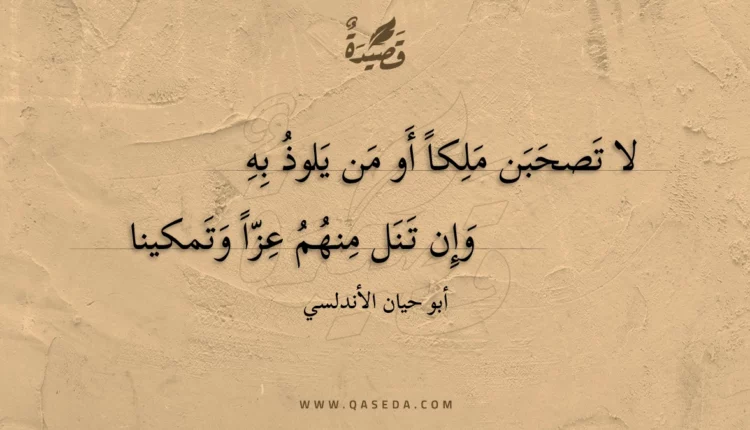 قَصِيدَةٌ
لا تَصحَبَن مَلِكاً أَو مَن يَلوذُ بِهِ
وَإِن تَنَل مِنهُمُ عِزّاً وَتَمكينا
أبو حيان الأندلسي
WWW.QASEDA.COM